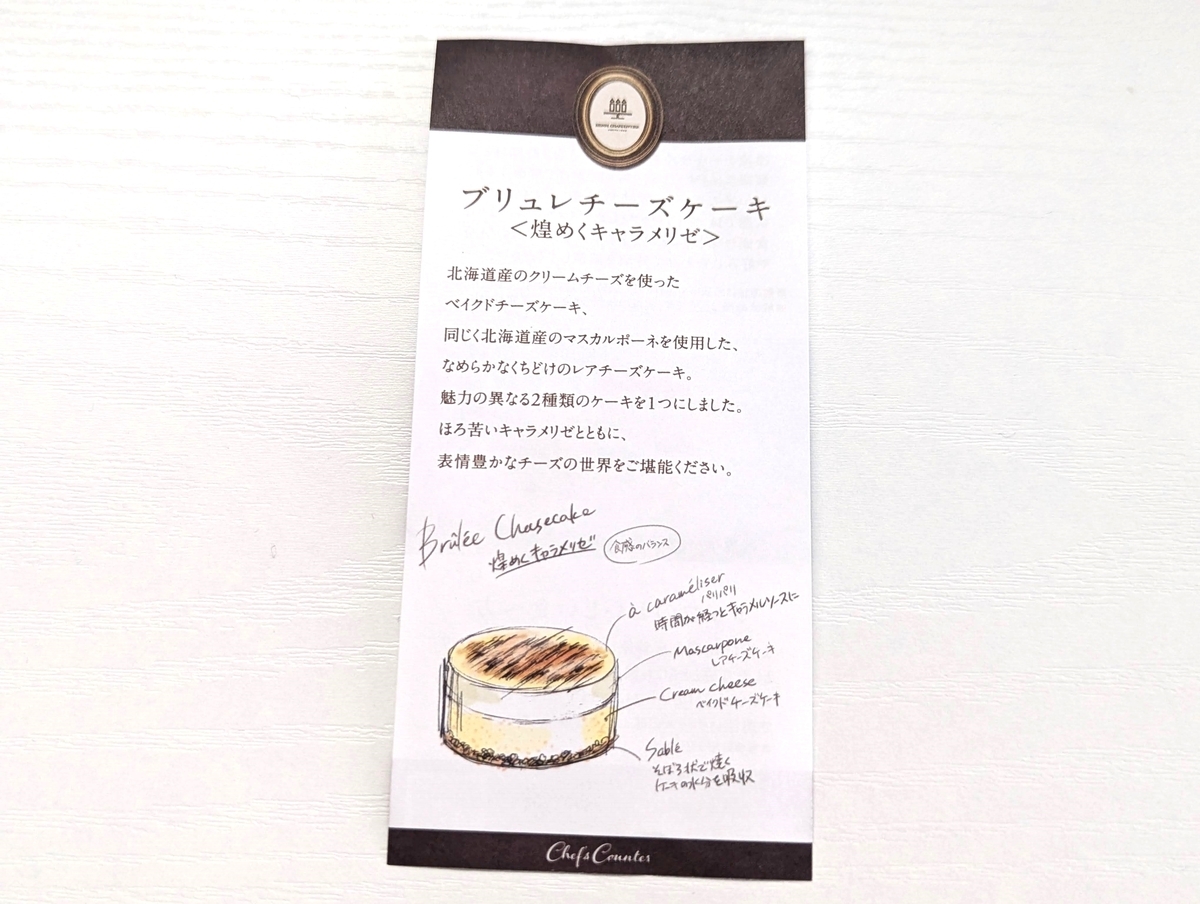 ブリュレチーズケーキ
＜煌めくキャラメリゼ＞
北海道産のクリームチーズを使った
ベイクドチーズケーキ、
同じく北海道産のマスカルポーネを使用した、
なめらかなくちどけのレアチーズケーキ。
魅力の異なる2種類のケーキを1つにしました。
ほろ苦いキャラメリゼとともに、
表情豊かなチーズの世界をご堪能ください。
Brûlée Chasecake
煌めくキャラメリゼ
食感のバランス
à caraméliser
パリパリ
時間が経つとキャラメルソースに
Mascarpone
レアチーズケーキ
Cream cheese
ベイクドチーズケーキ
Sablé
そぼろ状で焼く
ケーキの水分を吸収
Chef's Counter